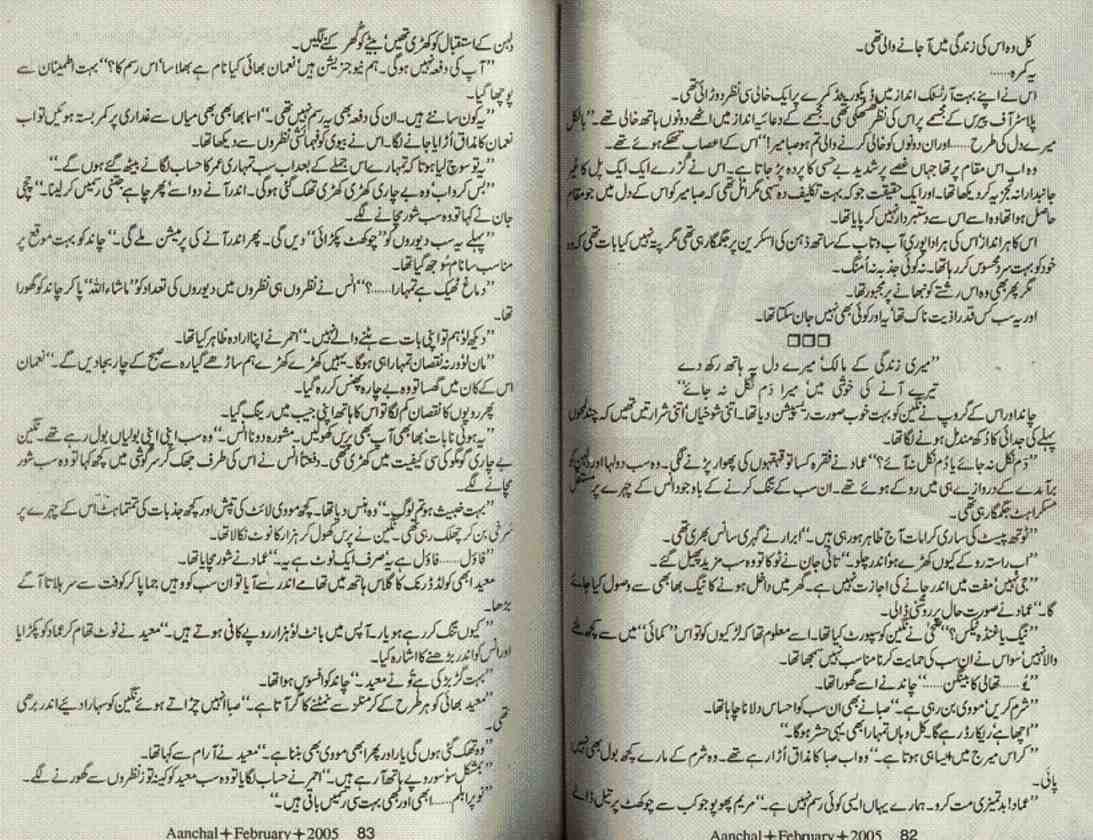 کل وہ اس کی زندگی میں آ جانے والی تھی۔
یہ کمرہ......
اس نے اپنے بہت آرٹسٹک انداز میں ڈیکوریٹڈ کمرے پر ایک خالی سی نظر دوڑائی تھی۔
پلاسٹر آف پیرس کے مجسمے پر اس کی نظر ٹھٹکی تھی۔ مجسمے کے دعائیہ انداز میں اٹھے دونوں ہاتھ خالی تھے۔ ”بالکل
میرے دل کی طرح...... اور ان دونوں کو خالی کرنے والی تم ہو صبا میر!“ اس کے اعصاب تھکے ہوئے تھے۔
وہ اب اس مقام پر تھا جہاں غصے پر شدید بے حسی کا پردہ پڑ جاتا ہے۔ اس نے گزرے ایک ایک پل کا غیر
جانبدارانہ تجزیہ کر دیکھا تھا۔ اور ایک حقیقت جو کہ بہت تکلیف دہ سہی مگر اٹل تھی کہ صبا میر کو اس کے دل میں جو مقام
حاصل ہوا تھا وہ اسے اس سے دستبردار نہیں کر پایا تھا۔
اس کا ہر انداز، اس کی ہر ادا پوری آب و تاب کے ساتھ ذہن کی اسکرین پر جگمگا رہی تھی مگر پتہ نہیں کیا بات تھی کہ وہ
خود کو بہت سرد محسوس کر رہا تھا۔ نہ کوئی جذبہ نہ اُمنگ۔
مگر پھر بھی وہ اس رشتے کو نبھانے پر مجبور تھا۔
اور یہ سب کس قدر اذیت ناک تھا، یہ اور کوئی بھی نہیں جان سکتا تھا۔
□□□
”میری زندگی کے مالک میرے دل پہ ہاتھ رکھ دے
تیرے آنے کی خوشی میں میرا دَم نکل نہ جائے“
چاند اور اس کے گروپ نے نگین کو بہت خوب صورت ریسپشن دیا تھا۔ اتنی شوخیاں، اتنی شرارتیں تھیں کہ چند لمحوں
پہلے کی جدائی کا دُکھ مندمل ہونے لگا تھا۔
”دَم نکل نہ جائے یا دُم نکل نہ آئے؟“ عماد نے فقرہ کسا تو قہقہوں کی پھوار پڑنے لگی۔ وہ سب دولہا اور دلہن کو
برآمدے کے دروازے ہی میں روکے ہوئے تھے۔ ان سب کے تنگ کرنے کے باوجود انس کے چہرے پر مستقل
مسکراہٹ جگمگا رہی تھی۔
”ٹوتھ پیسٹ کی ساری کرامات آج ظاہر ہو رہی ہیں۔“ ابرار نے گہری سانس بھری تھی۔
”اب راستہ روکے کیوں کھڑے ہو، اندر چلو۔“ تائی جان نے ٹوکا تو وہ سب مزید پھیل گئے۔
”جی نہیں، مفت میں اندر جانے کی اجازت نہیں ہے۔ گھر میں داخل ہونے کا نیگ بھابھی سے وصول کیا جائے
گا۔“ عماد نے صورتِ حال پر روشنی ڈالی۔
”نیگ یا غنڈہ ٹیکس؟“ نے نگین کو سپورٹ کیا تھا۔ اسے معلوم تھا کہ لڑکیوں کو تو اس ”کمائی“ میں سے کچھ ملنے
والا نہیں سو اس نے ان سب کی حمایت کرنا مناسب نہیں سمجھا تھا۔
”یُو...... تھالی کا بینگن......“ چاند نے اسے گھورا تھا۔
”شرم کریں، مووی بن رہی ہے۔“ صبا نے بھی ان سب کو احساس دلانا چاہا تھا۔
”اچھا ہے، ریکارڈ رہے گا، کل وہاں تمہارا بھی یہی حشر ہوگا۔“
”کراس میرج میں ایسا ہی ہوتا ہے۔“ وہ اب صبا کا مذاق اُڑا رہے تھے۔ وہ شرم کے مارے کچھ بول بھی نہیں
پائی۔
”عماد! بدتمیزی مت کرو۔ ہمارے یہاں ایسی کوئی رسم نہیں ہے۔“ مریم پھوپو جو کب سے چوکھٹ پر تیل ڈالے
Aanchal+February+2005 82
دلہن کے استقبال کو کھڑی تھیں، بیٹے کو گھرکنے لگیں۔
”آپ کی دفعہ نہیں ہوگی۔ ہم نیو جنریشن ہیں، نعمان بھائی کیا نام ہے بھلا سا، اس رسم کا؟“ بہت اطمینان سے
پوچھا گیا۔
”یہ کون سا مانتے ہیں۔ ان کی دفعہ بھی یہ رسم نہیں تھی۔“ اسما بھابھی بھی میاں سے غداری پر کمر بستہ ہوئیں تو اب
نعمان کا مذاق اُڑایا جانے لگا۔ اس نے بیوی کو فہمائشی نظروں سے دیکھا تھا۔
”یہ تو سوچ لیا ہوتا کہ تمہارے اس جملے کے بعد اب سب تمہاری عمر کا حساب لگانے بیٹھ گئے ہوں گے۔“
”بس کرو اب، وہ بے چاری کھڑی کھڑی تھک گئی ہوگی۔ اندر آنے دو اسے، پھر چاہے جتنی رسمیں کر لینا۔“ چچی
جان نے کہا تو وہ سب شور مچانے لگے۔
”پہلے یہ سب دیوروں کو ”چوکھٹ پکڑائی“ دیں گی۔ پھر اندر آنے کی پرمیشن ملے گی۔“ چاند کو بہت موقع پر
مناسب سا نام سُوجھ گیا تھا۔
”دماغ ٹھیک ہے تمہارا.....؟“ انس نے نظروں ہی نظروں میں دیوروں کی تعداد کو ”ماشاء اللہ“ پا کر چاند کو گھورا
تھا۔
”دیکھ لو، ہم تو اپنی بات سے ہٹنے والے نہیں۔“ احمر نے اپنا ارادہ ظاہر کیا تھا۔
”مان لو، ورنہ نقصان تمہارا ہی ہوگا۔ یہیں کھڑے کھڑے ہم ساڑھے گیارہ سے صبح کے چار بجا دیں گے۔“ نعمان
اس کے کان میں گھسا تو وہ بے چارہ پھنس کر رہ گیا۔
پھر روپوں کا نقصان کم لگا تو اس کا ہاتھ اپنی جیب میں رینگ گیا۔
”یہ ہوئی نا بات، بھابھی آپ بھی پرس کھولیں۔ مشورہ دو نا انس۔“ وہ سب اپنی اپنی بولیاں بول رہے تھے۔ نگین
بے چاری گومگو کی سی کیفیت میں کھڑی تھی۔ دفعتاً انس نے اس کی طرف جھک کر سرگوشی میں کچھ کہا تو وہ سب شور
مچانے لگے۔
”بہت خبیث ہو تم لوگ۔“ وہ ہنس دیا تھا۔ کچھ مووی لائٹ کی تپش اور کچھ جذبات کی تمتماہٹ اس کے چہرے پر
سُرخی بن کر چھلک رہی تھی۔ نگین نے پرس کھول کر ہزار کا نوٹ نکالا تھا۔
”فاؤل...... فاؤل ہے یہ، صرف ایک نوٹ ہے یہ۔“ عماد نے شور مچایا تھا۔
معید ابھی کولڈ ڈرنک کا گلاس ہاتھ میں تھامے اندر سے آیا تو ان سب کو وہیں جما پا کر کوفت سے سر ہلاتا آگے
بڑھا۔
”کیوں تنگ کر رہے ہو یار۔ آپس میں بانٹ لو، ہزار روپے کافی ہوتے ہیں۔“ معید نے نوٹ تھام کر عماد کو پکڑایا
اور انس کو اندر بڑھنے کا اشارہ کیا۔
”بہت گڑبڑ کی ہے تُو نے معید۔“ چاند کو افسوس ہوا تھا۔
”معید بھائی کو ہر طرح کے کرمنلز سے نمٹنے کا گُر آتا ہے۔“ صبا انہیں چڑاتے ہوئے نگین کو سہارا دیئے اندر بڑھی
تھی۔
”وہ تھک گئی ہوں گی یار اور پھر ابھی مووی بھی بننا ہے۔“ معید نے آرام سے کہا تھا۔
”بمشکل سو سو روپے ہاتھ آ رہے ہیں۔“ احمر نے حساب لگایا تو وہ سب معید کو کینہ توز نظروں سے گھورنے لگے۔
”نو پرابلم...... ابھی اور بھی بہت سی رسمیں باقی ہیں۔“
Aanchal+February+2005 83